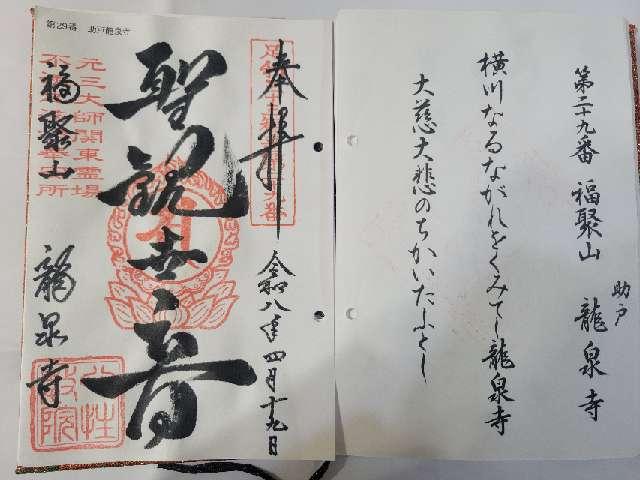 助戸
第二十九番 福聚山 龍泉寺
横川なるながれをくみてし龍泉寺
大慈大悲のちかいたふとし
第29番 助戸龍泉寺
奉拝
令和八年四月十九日
聖観世音
元三大師関東霊場
福聚山
龍泉寺